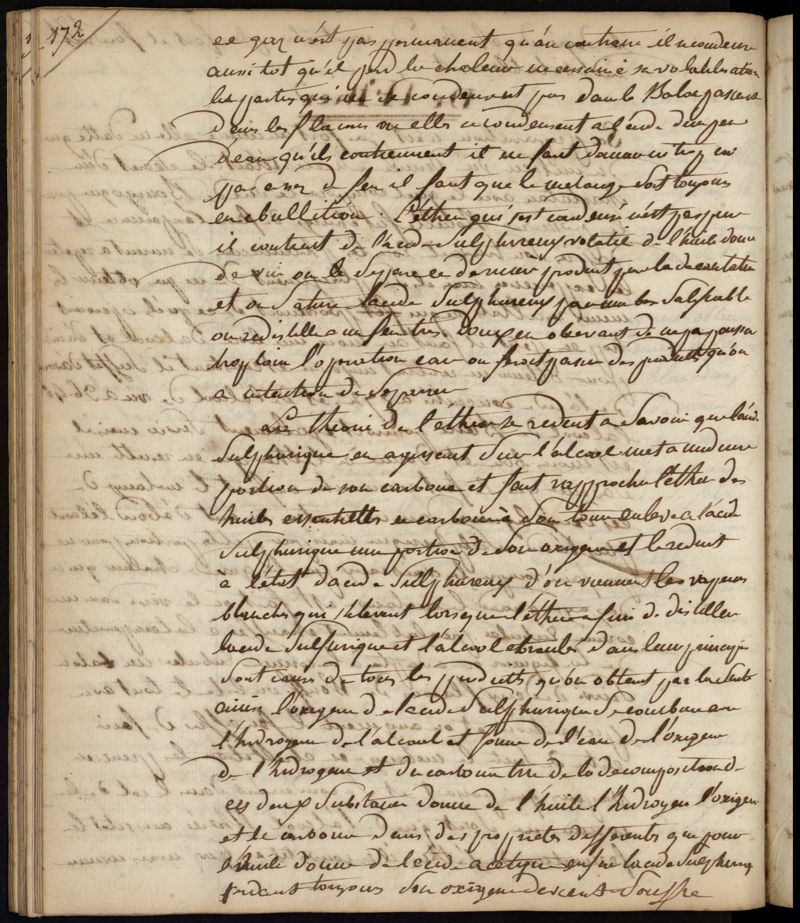 172
ce gaz n'est pas permanent qu'au contraire il se condense
aussitot qu'il perd la chaleur necessaire a sa volatilisation
les parties qui ne se condensent pas dans le Balon passent
dans les flacons ou elles se condensent a l'aide d'un peu
d'eau qu'ils contiennent il ne faut d'avance trop
pas de feu il faut que le melange soit toujours
en ebullition. L'ether qui s'est condensé n'est pas pur
il contient de l'acide Sulphureux volatil de l'huile douce
de vin on le Separe ce dernier produit par la decantation
et on Sature l'acide Sulphureux par une base Salifiable
on redistille a un feu tres doux en observant de ne pas pousser
trop loin l'operation car on feroit passer des produits qu'on
a intention de Separer
La theorie de l'ether se reduit a Savoir que l'acide
Sulphurique en agissant Sur l'alcool met a nud une
portion de son carbone et fait rapprocher l'ether des
huiles essentielles ce carbone à Son tour enleve a l'acide
Sulphurique une portion de Son oxigene et le reduit
à l'état d'acide Sulphureux d'ou viennent les vapeurs
blanches qui s'elevent lorsque l'ether a fini de distiller
l'acide Sulfurique et l'alcool ebranlés dans leur principe
Sont causes de tous les produits qu'on obtient par la Suite
ainsi l'oxigene de l'acide Sulphurique Se combine avec
l'hidrogene de l'alcool et forme de l'eau de l'oxigene
de l'hidrogene et du carbone tiré de la decomposition de
ces deux Substances donne de l'huile l'hidrogene l'oxigene
et le carbone dans des proprietés differentes que pour
l'huile donne de l'acide acetique enfin l'acide Sulphurique
perdant toujours Son oxigene devient Souffre